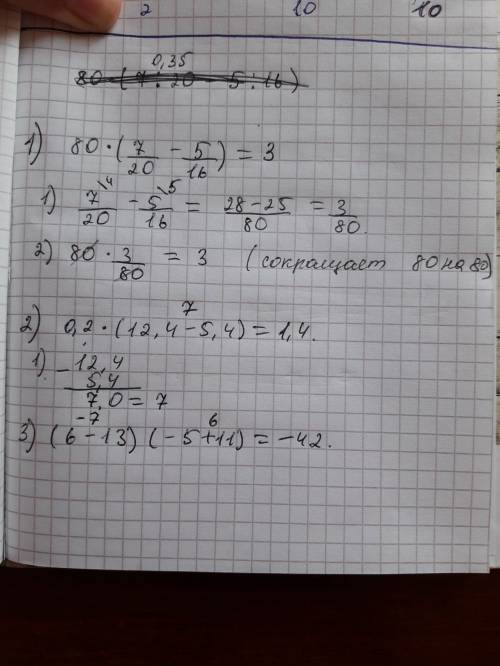 2 10 10
0,35
80 (7 : 20 - 5 : 16)
1) 80 · (7/20 - 5/16) = 3
1) 7\4/20 - 5\5/16 = 28-25/80 = 3/80.
2) 80 · 3/80 = 3 (сокращает 80 на 80)
7
2) 0,2 · (12,4-5,4) = 1,4.
1) - 12,4
5,4
7,0 = 7
-7 6
3) (6-13) (-5+11) = -42.